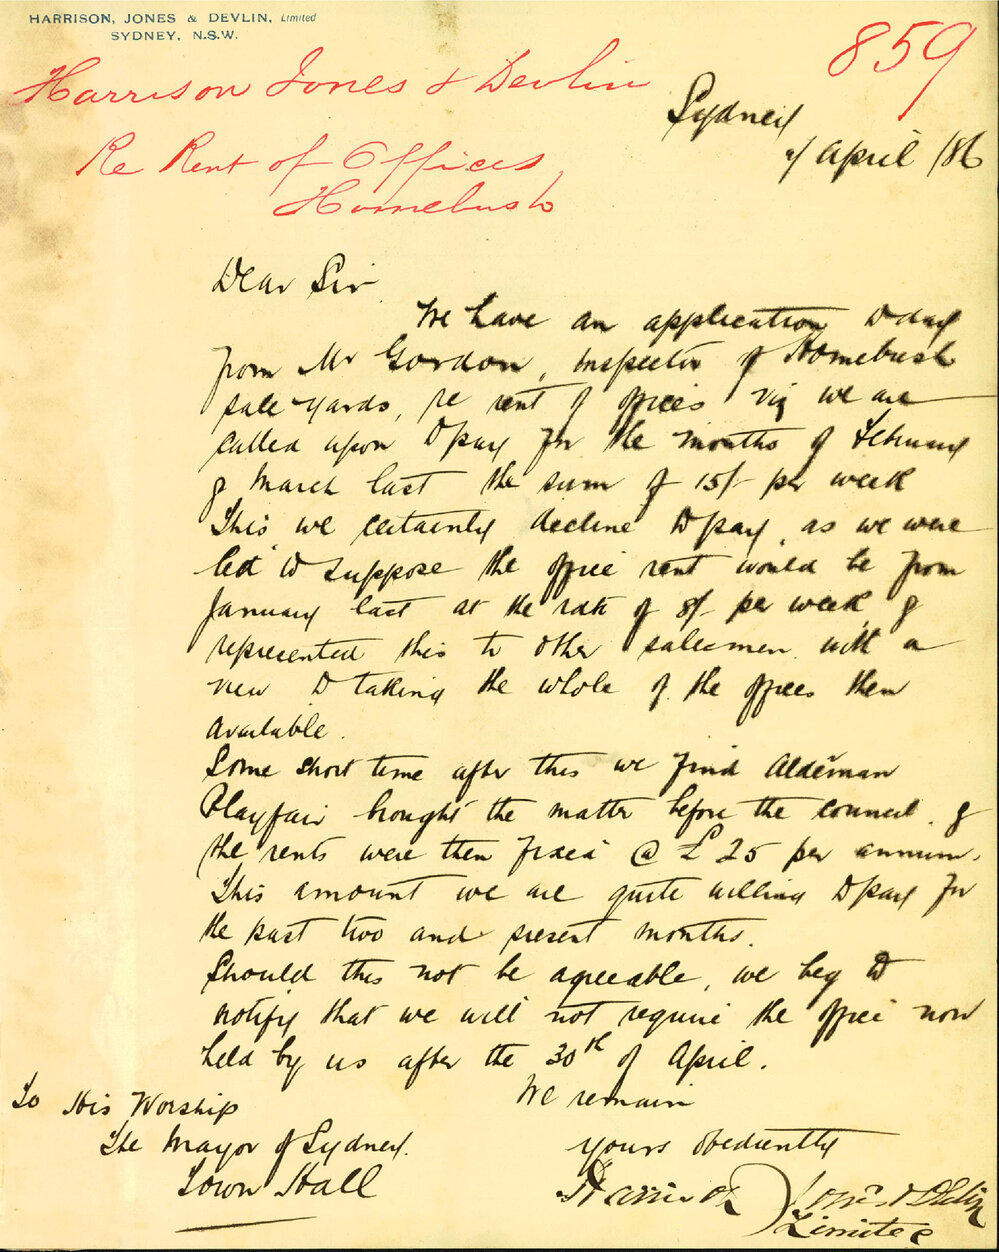 HARRISON, JONES & DEVLIN, Limited
SYDNEY, N.S.W.
859
Harrison Jones & Devlin
Re Rent of Offices
Homebush
Sydney
April /86
Dear Sir
We have an application to day
from Mr Gordon, Inspector of Homebush
sale yards, re rent of offices viz we are
called upon to pay for the months of February
& March last the sum of 15/- per week
This we certainly decline to pay, as we were
led to suppose the office rent would be from
January last at the rate of 8/- per week, &
represented this to other salesmen with a
view to taking the whole of the offices then
available.
Some short time after this we find Alderman
Playfair brought the matter before the council. &
the rents were then fixed @ £25 per annum.
This amount we are quite willing to pay for
the past two and present months.
Should this not be agreeable, we beg to
notify that we will not require the office now
held by us after the 30th of April.
We remain
yours obediently
Harrison Jones & Devlin
Limited
To His Worship
The Mayor of Sydney.
Town Hall